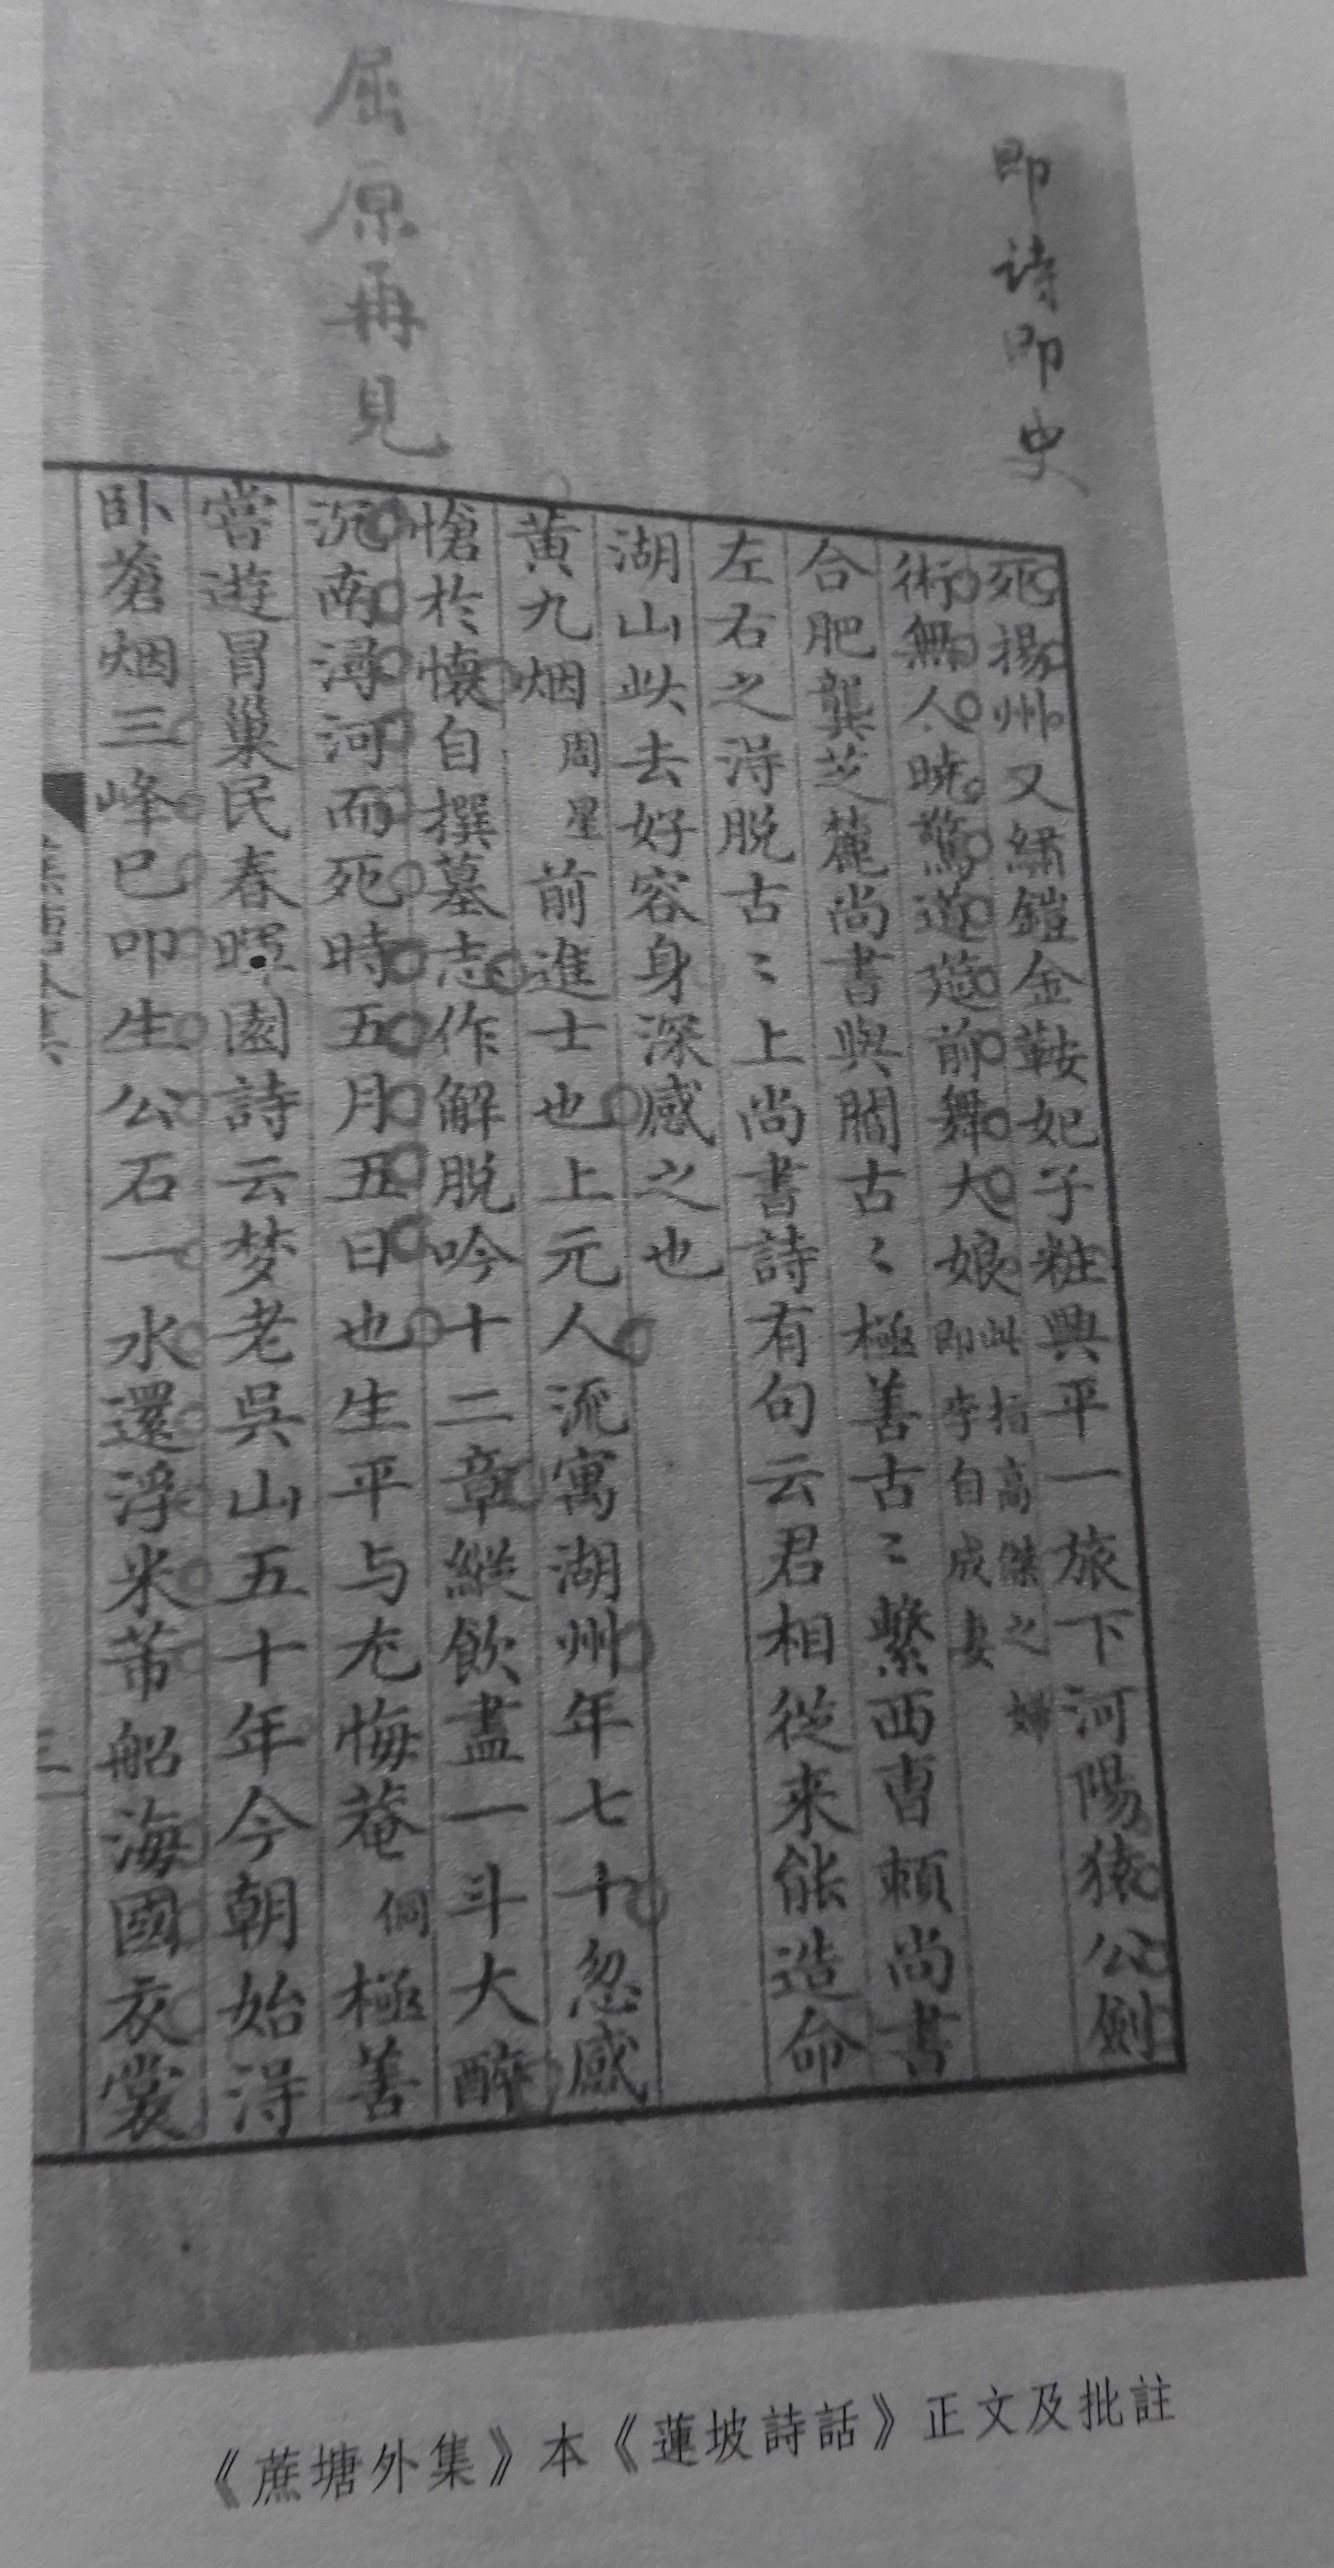 即詩即史
屈原再見
死揚州又繡鎧金鞍妃子粧興平一旅下河陽猿公劍
術無人曉驚道筵前舞大娘此指高傑之婦即李自成妻
合肥龔芝麓尚書與閻古〻極善古〻繫西曹賴尚書
左右之得脱古〻上尚書詩有句云君相從来能造命
湖山此去好容身深感之也
黄九烟周星前進士也上元人流寓湖州年七十忽感
愴於懷自撰墓志作解脱吟十二章縱飲盡一斗大醉
沉南潯河而死時五月五日也生平与尤悔菴侗極善
嘗遊冒巢民春暉園詩云梦老吳山五十年今朝始得
卧蒼烟三峰已叩生公石一水還浮米芾船海國衣裳
三
《蔗塘外集》本《蓮坡詩話》正文及批註